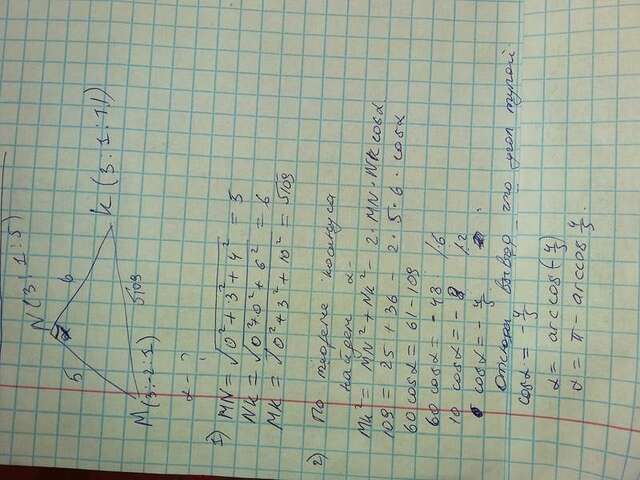 N(3;1;5)
5
6
α
K(3:1:11)
M(3:-2:1)
√109
α - ?
1) MN = √0²+3²+4² = 5
NK = √0²+0²+6² = 6
MK = √0²+3²+10² = √109
2) По теореме косинуса
найдем α-
MK² = MN² + NK² - 2·MN·NK cosα
109 = 25 + 36 - 2·5·6·cosα
60 cosα = 61 - 109
60 cosα = -48 /6
10 cosα = -8 /2
cosα = -4/5
Отсюда вывод что угол тупой
cosα = -4/5
α = arccos(-4/5)
α = π - arccos 4/5.